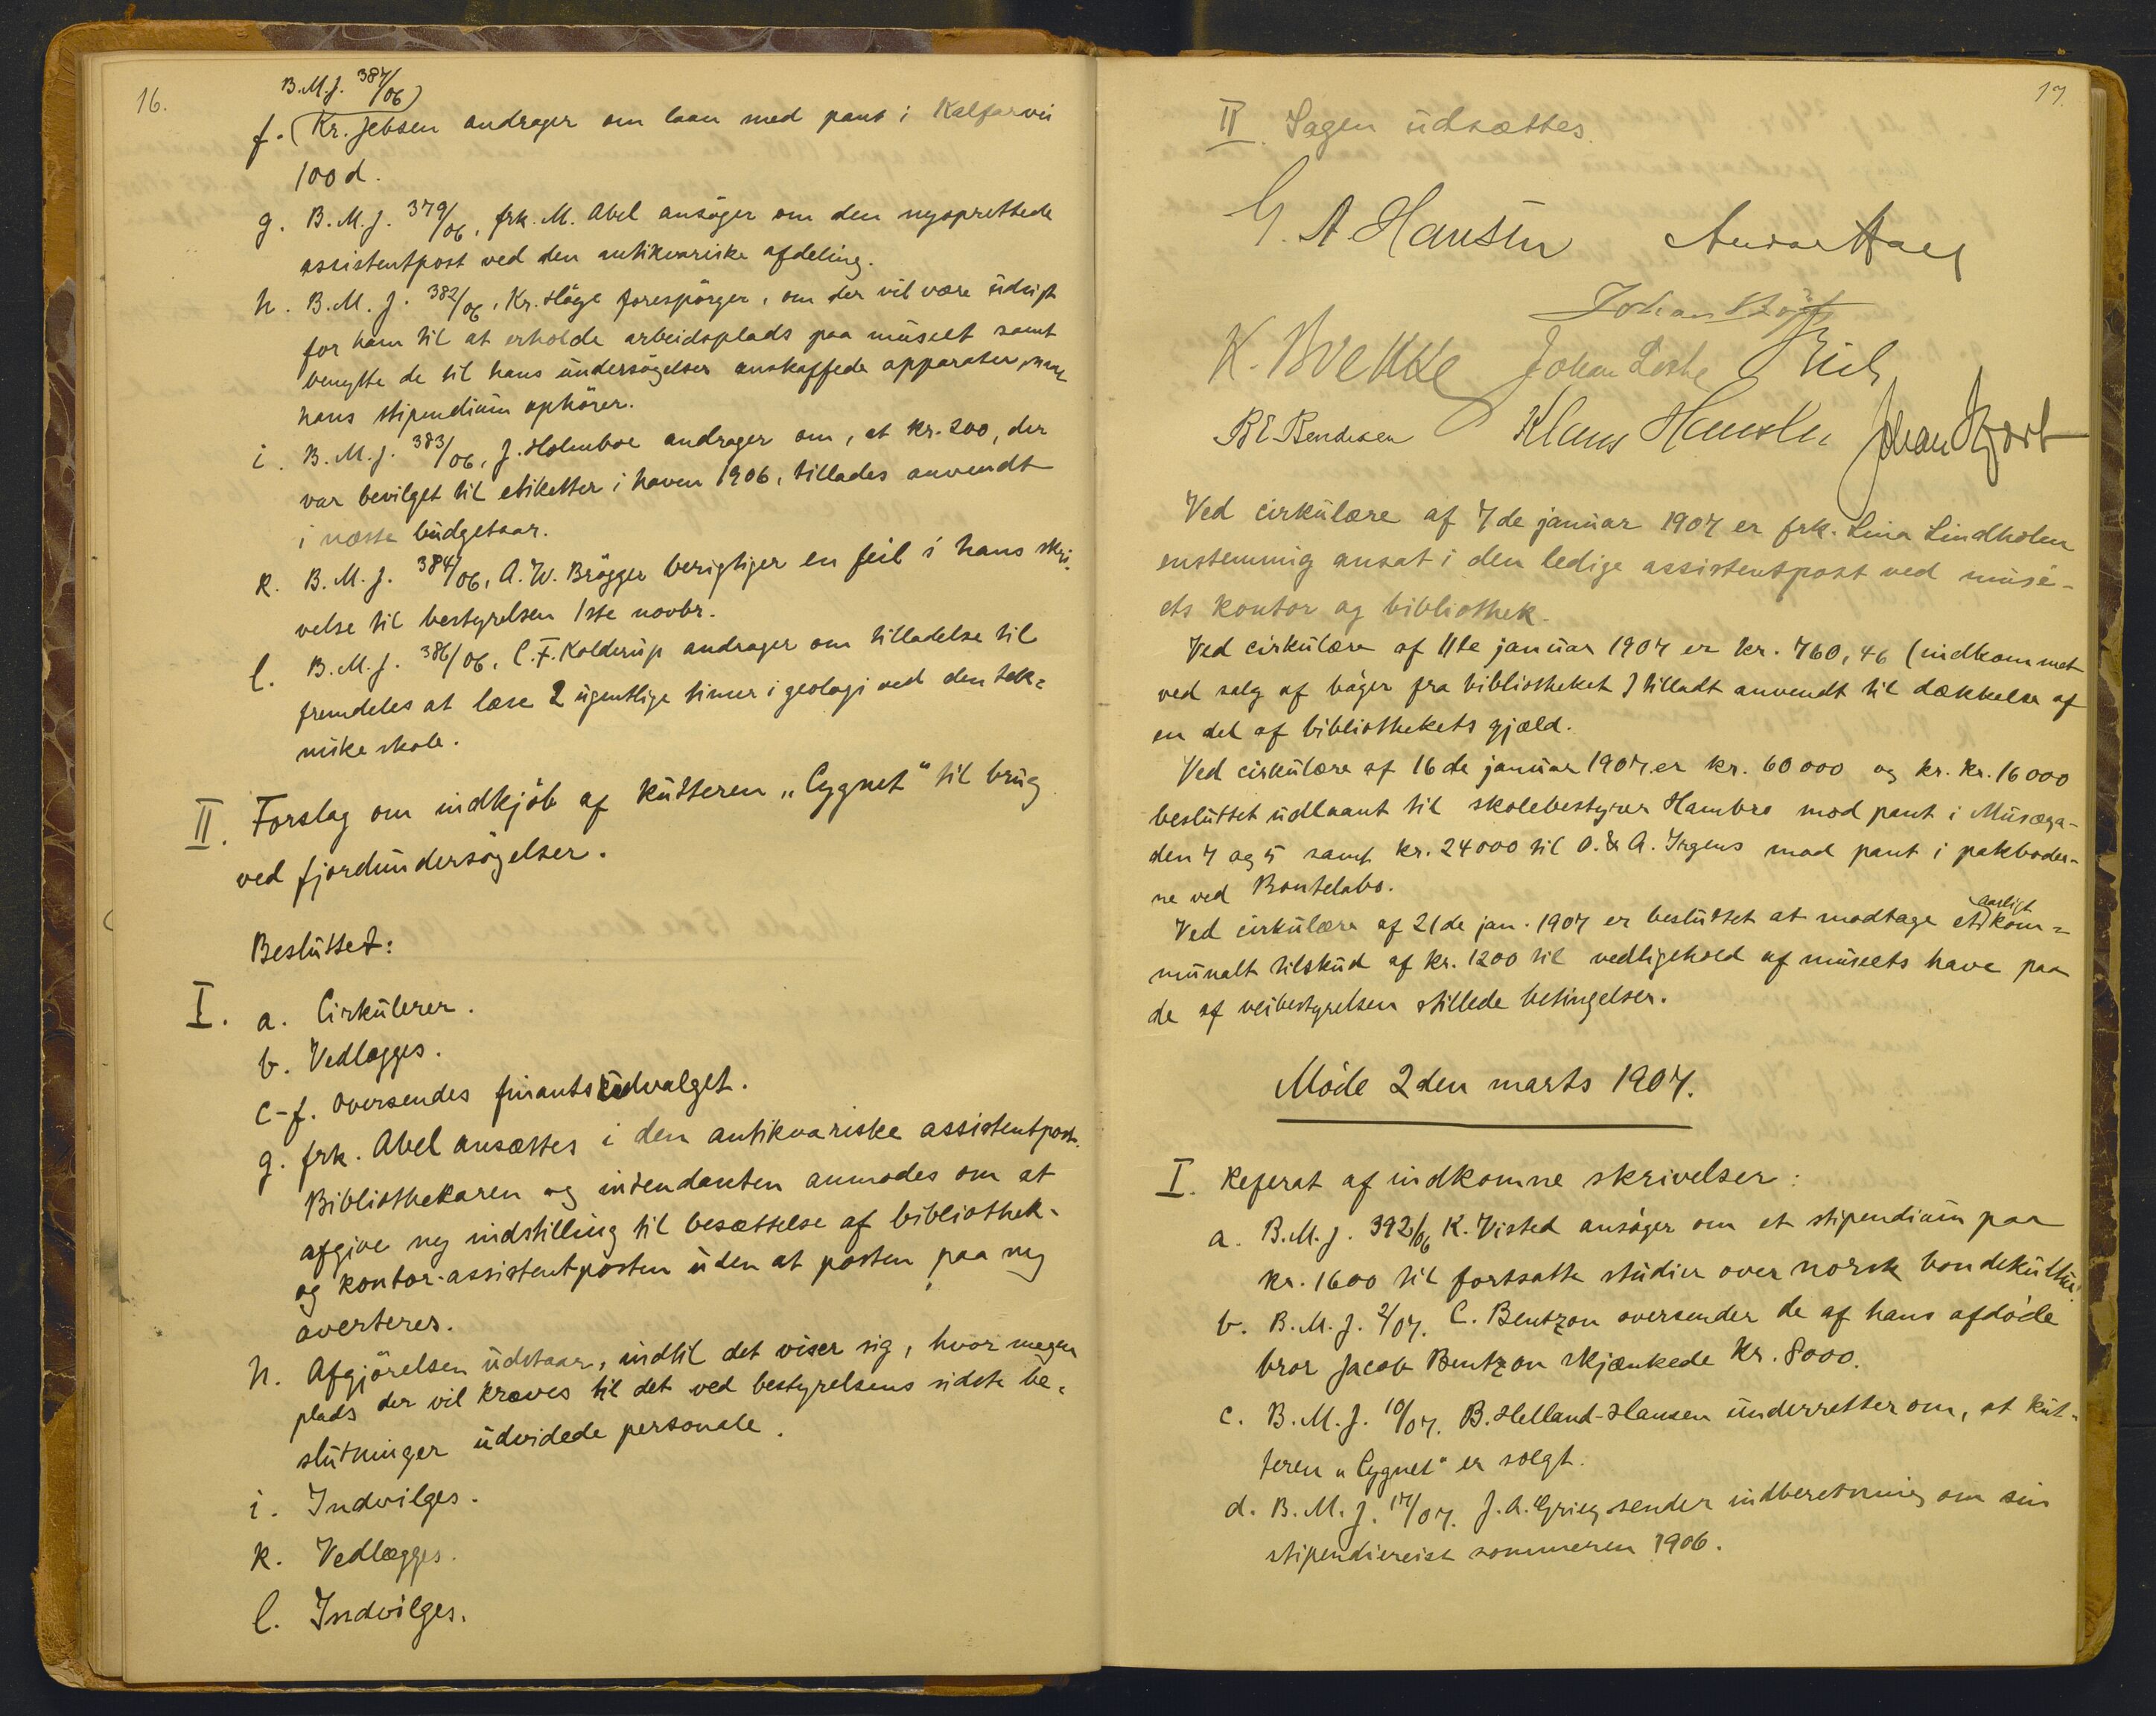 16.
B.M.J. 387/06)
f. (Kr. Jebsen andrager om laan med pant i Kalfarvei
100 d.
g. B.M.J. 379/06, frk. M. Abel ansöger om den nyoprettede
assistentpost ved den antikvariske afdeling.
h. B.M.J. 382/06, Kr. Höge forespörger, om der vil være udsigt
for ham til at erholde arbeidsplads paa museet samt
benytte de til hans undersögelser anskaffede apparater, naar
hans stipendium ophörer.
i. B.M.J. 383/06, J. Holmboe andrager om, at kr. 200, der
var bevilget til etiketter i haven 1906, tillades anvendt
i næste budgetaar.
k. B.M.J. 384/06, A.W. Brögger berigtiger en feil i hans skri-
velse til bestyrelsen 1ste novbr.
l. B.M.J. 386/06, C.F. Kolderup andrager om tilladelse til
fremdeles at læse 2 ugentlige timer i geologi ved den tek=
niske skole.
II. Forslag om indkjöb af kutteren „Cygnet“ til brug
ved fjordundersögelser.
Besluttet:
I. a. Cirkulerer.
b. Vedlægges.
c-f. Oversendes finantsudvalget.
g. frk. Abel ansættes i den antikvariske assistentpost.
Bibliothekaren og intendanten anmodes om at
afgive ny indstilling til besættelse af bibliothek-
og kontor-assistentposten uden at posten paa ny
averteres.
h. Afgjörelsen udstaar, indtil det viser sig, hvor megen
plads der vil kræves til det ved bestyrelsens sidste be-
slutninger udvidede personale.
i. Indvilges.
k. Vedlægges.
l. Indvilges.
17.
II Sagen udsættes.
G. A Hansen
K. Brekke Johan Lothe
B E Bendixen Klaus Hanssen Johan Hjort
Ved cirkulære af 7de januar 1907 er frk. Lina Lindholm
enstemmig ansat i den ledige assistentpost ved muse-
ets kontor og bibliothek.
Ved cirkulære af 11te januar 1907 er kr. 760,46 (indkommet
ved salg af böger fra bibliotheket) tilladt anvendt til dækkelse af
en del af bibliothekets gjæld.
Ved cirkulære af 16de januar 1907 er kr. 60 000 og kr. kr. 16 000
besluttet udlaant til skolebestyrer Hambro mod pant i Musæga-
den 7 og 5 samt kr. 24 000 til O. & A. Irgens mod pant i pakboder-
ne ved Bontelabo.
Ved cirkulære af 21de jan. 1907 er besluttet at modtage et aarligt kom=
munalt tilskud af kr. 1200 til vedligehold af museets have paa
de af veibestyrelsen stillede betingelser.
Möde 2den marts 1907.
I. Referat af indkomne skrivelser:
a. B.M.J. 392/06 K. Visted ansöger om et stipendium paa
kr. 1600 til fortsatte studier over norsk bondekultur.
b. B.M.J. 2/07. C. Bentzon oversender de af hans afdöde
bror Jacob Bentzon skjænkede Kr. 8000.
c. B.M.J. 10/07. B. Helland-Hansen underretter om, at kut-
teren „Cygnet“ er solgt.
d. B.M.J. 17/07. J.A. Grieg sender indberetning om sin
stipendiereise sommeren 1906.